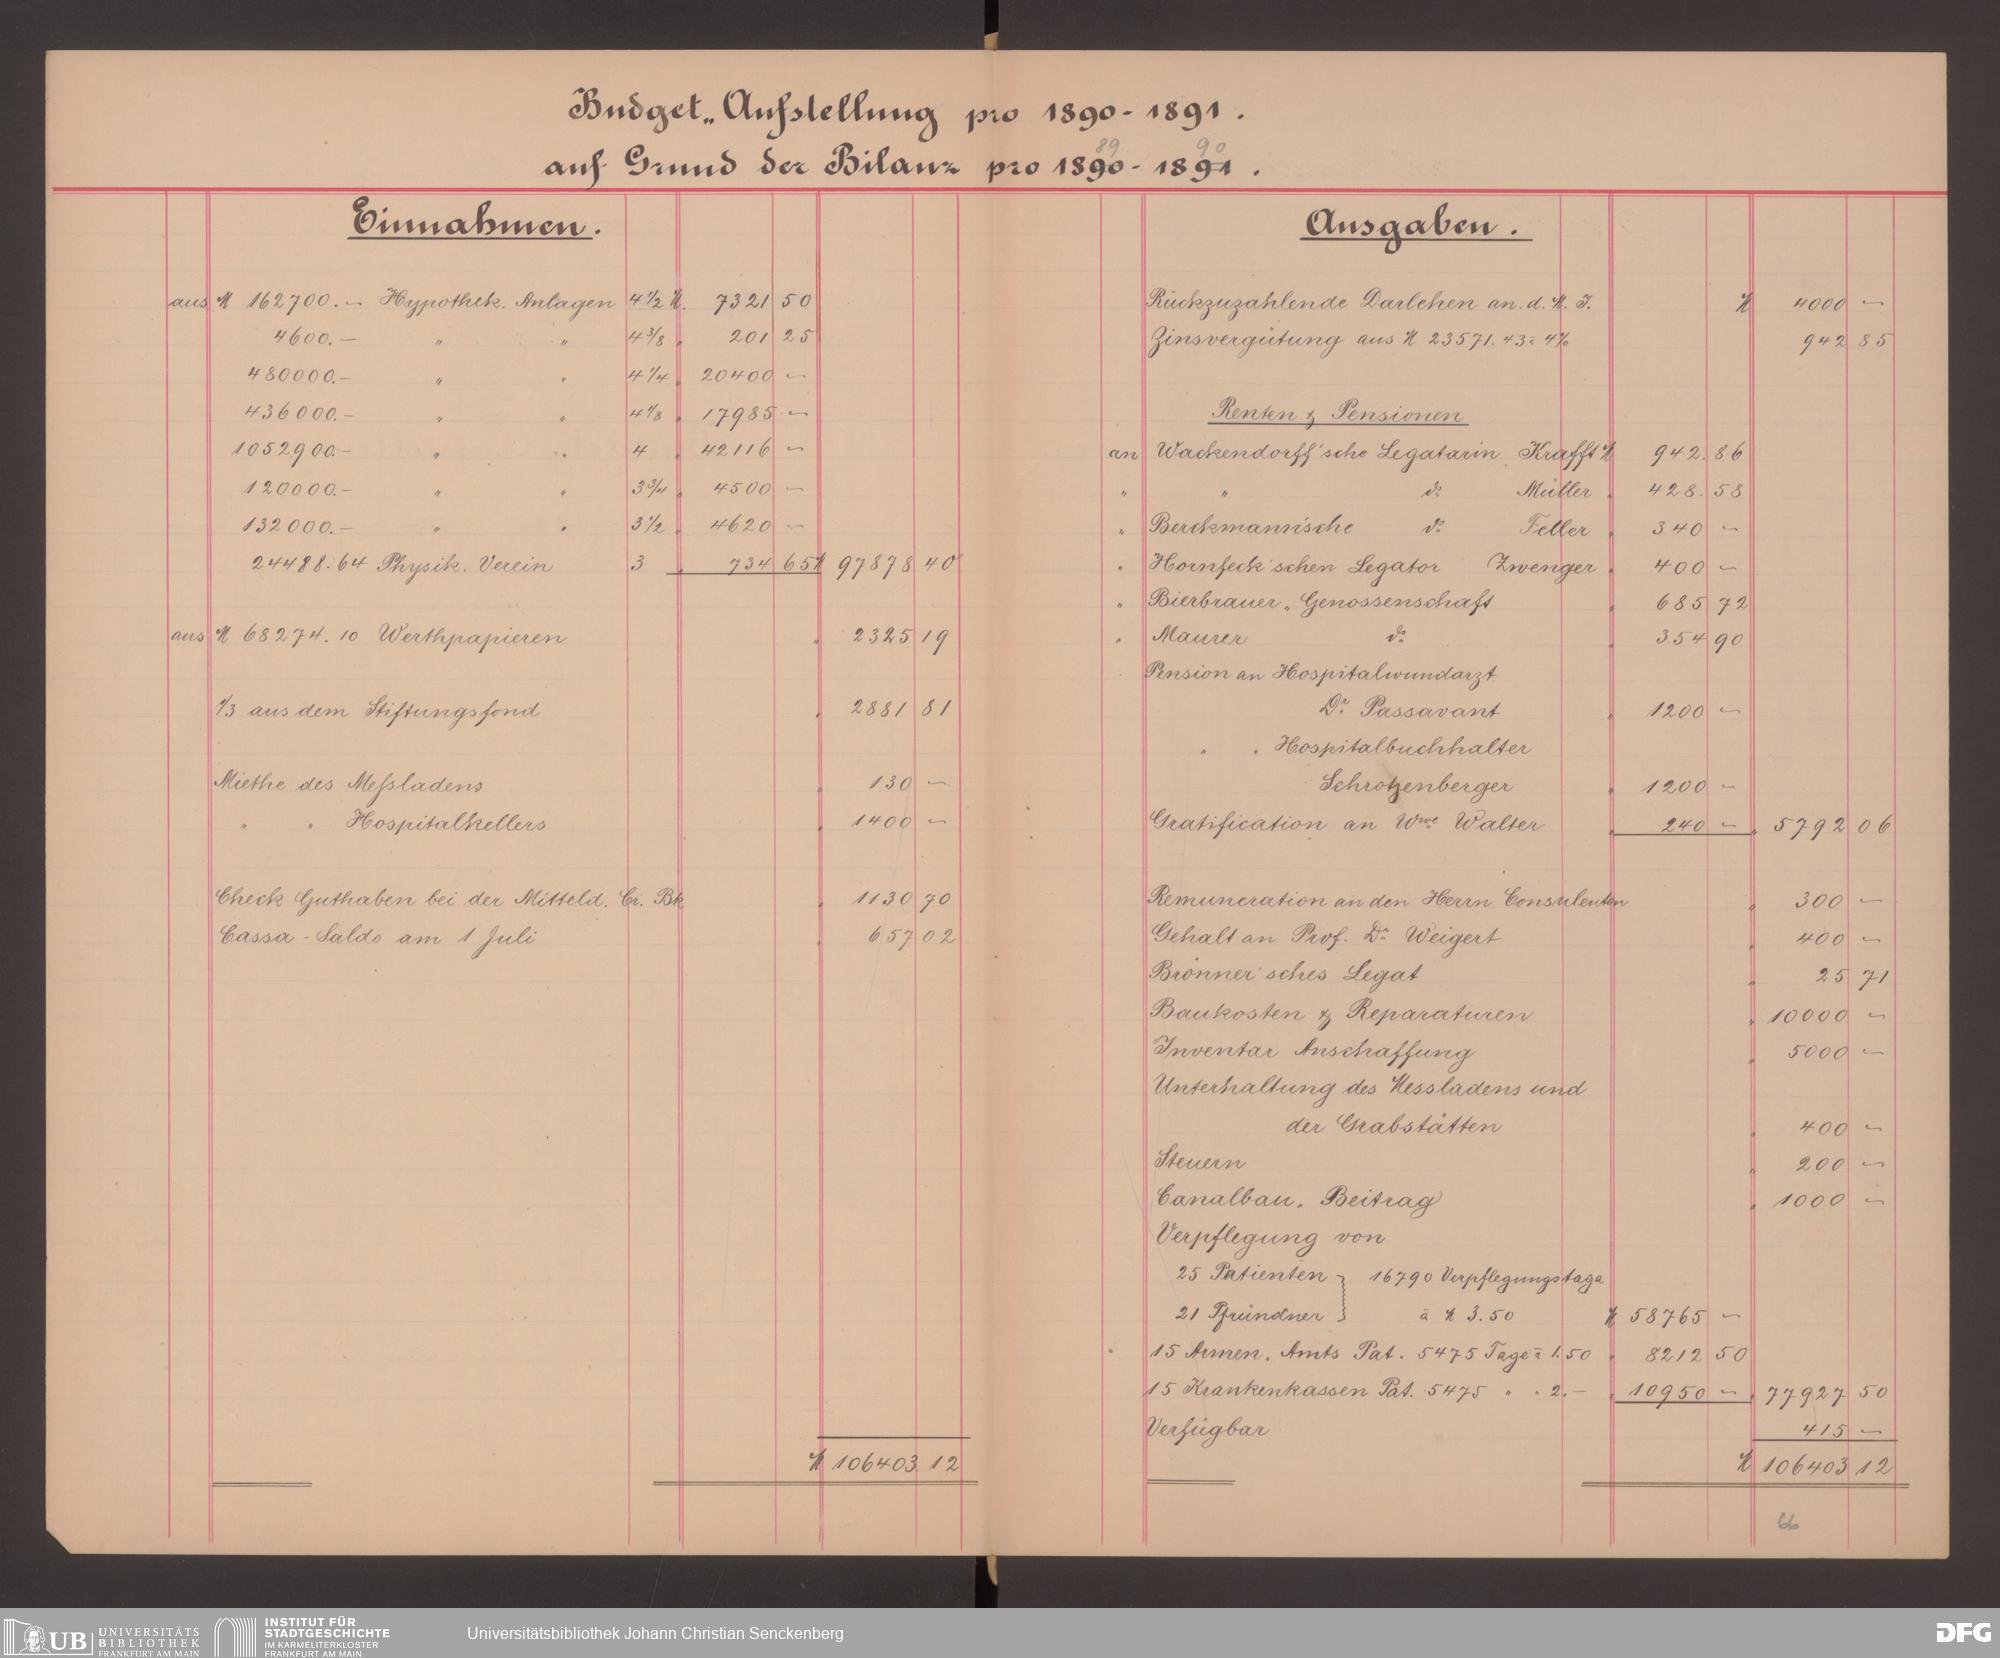 Budget-Aufstellung pro 1890-1891.
auf Grund der Bilanz pro 1890-1891.
89 90
Einnahmen.
aus M 162700.— Hypothek. Anlagen 4 1/2 M. 7321 50
4600.— " " 4 3/8 " 201 25
480000.— " " 4 1/4 " 20400 —
436000.— " " 4 1/8 " 17985 —
1052900.— " " 4 " 42116 —
120000.— " " 3 3/4 " 4500 —
132000.— " " 3 1/2 " 4620 —
24488.64 Physik. Verein 3 " 734 65 M 97878 40
aus M 68274.10 Werthpapieren " 2325 19
1/3 aus dem Stiftungsfond " 2881 81
Miethe des Messladens " 130 —
" " Hospitalkellers " 1400 —
Check Guthaben bei der Mitteld. Cr. Bk " 1130 70
Cassa-Saldo am 1 Juli " 657 02
M 106403.12
Ausgaben.
Rückzuzahlende Darlehen an. d. M. J. M 4000 —
Zinsvergütung aus M 23571.43 à 4% 942 85
Renten & Pensionen
an Wackendorff'sche Legatarin Krafft M 942.86
" " do Müller " 428.58
" Berckmann'sche do Feller " 340 —
" Hornfeck'schen Legator Zwenger " 400 —
" Bierbrauer-Genossenschaft " 685 72
" Maurer do " 354 90
Pension an Hospitalwundarzt
Dr. Passavant " 1200 —
" " Hospitalbuchhalter
Schrotzenberger " 1200 —
Gratification an Wwe Walter " 240 — " 5792 06
Remuneration an den Herrn Consulenten " 300 —
Gehalt an Prof. Dr. Weigert " 400 —
Brönner'sches Legat " 25 71
Baukosten & Reparaturen " 10000 —
Inventar Anschaffung " 5000 —
Unterhaltung des Messladens und
der Grabstätten " 400 —
Steuern " 200 —
Canalbau-Beitrag " 1000 —
Verpflegung von
25 Patienten } 16790 Verpflegungstage
21 Pfründner } à M 3.50 M 58765 —
15 Armen-Amts Pat. 5475 Tage à 1.50 " 8212 50
15 Krankenkassen Pat. 5475 " " 2.— " 10950 — " 77927 50
Verfügbar 415 —
M 106403 12
66
UB UNIVERSITÄTS
BIBLIOTHEK
FRANKFURT AM MAIN
INSTITUT FÜR
STADTGESCHICHTE
IM KARMELITERKLOSTER
FRANKFURT AM MAIN
Universitätsbibliothek Johann Christian Senckenberg
DFG